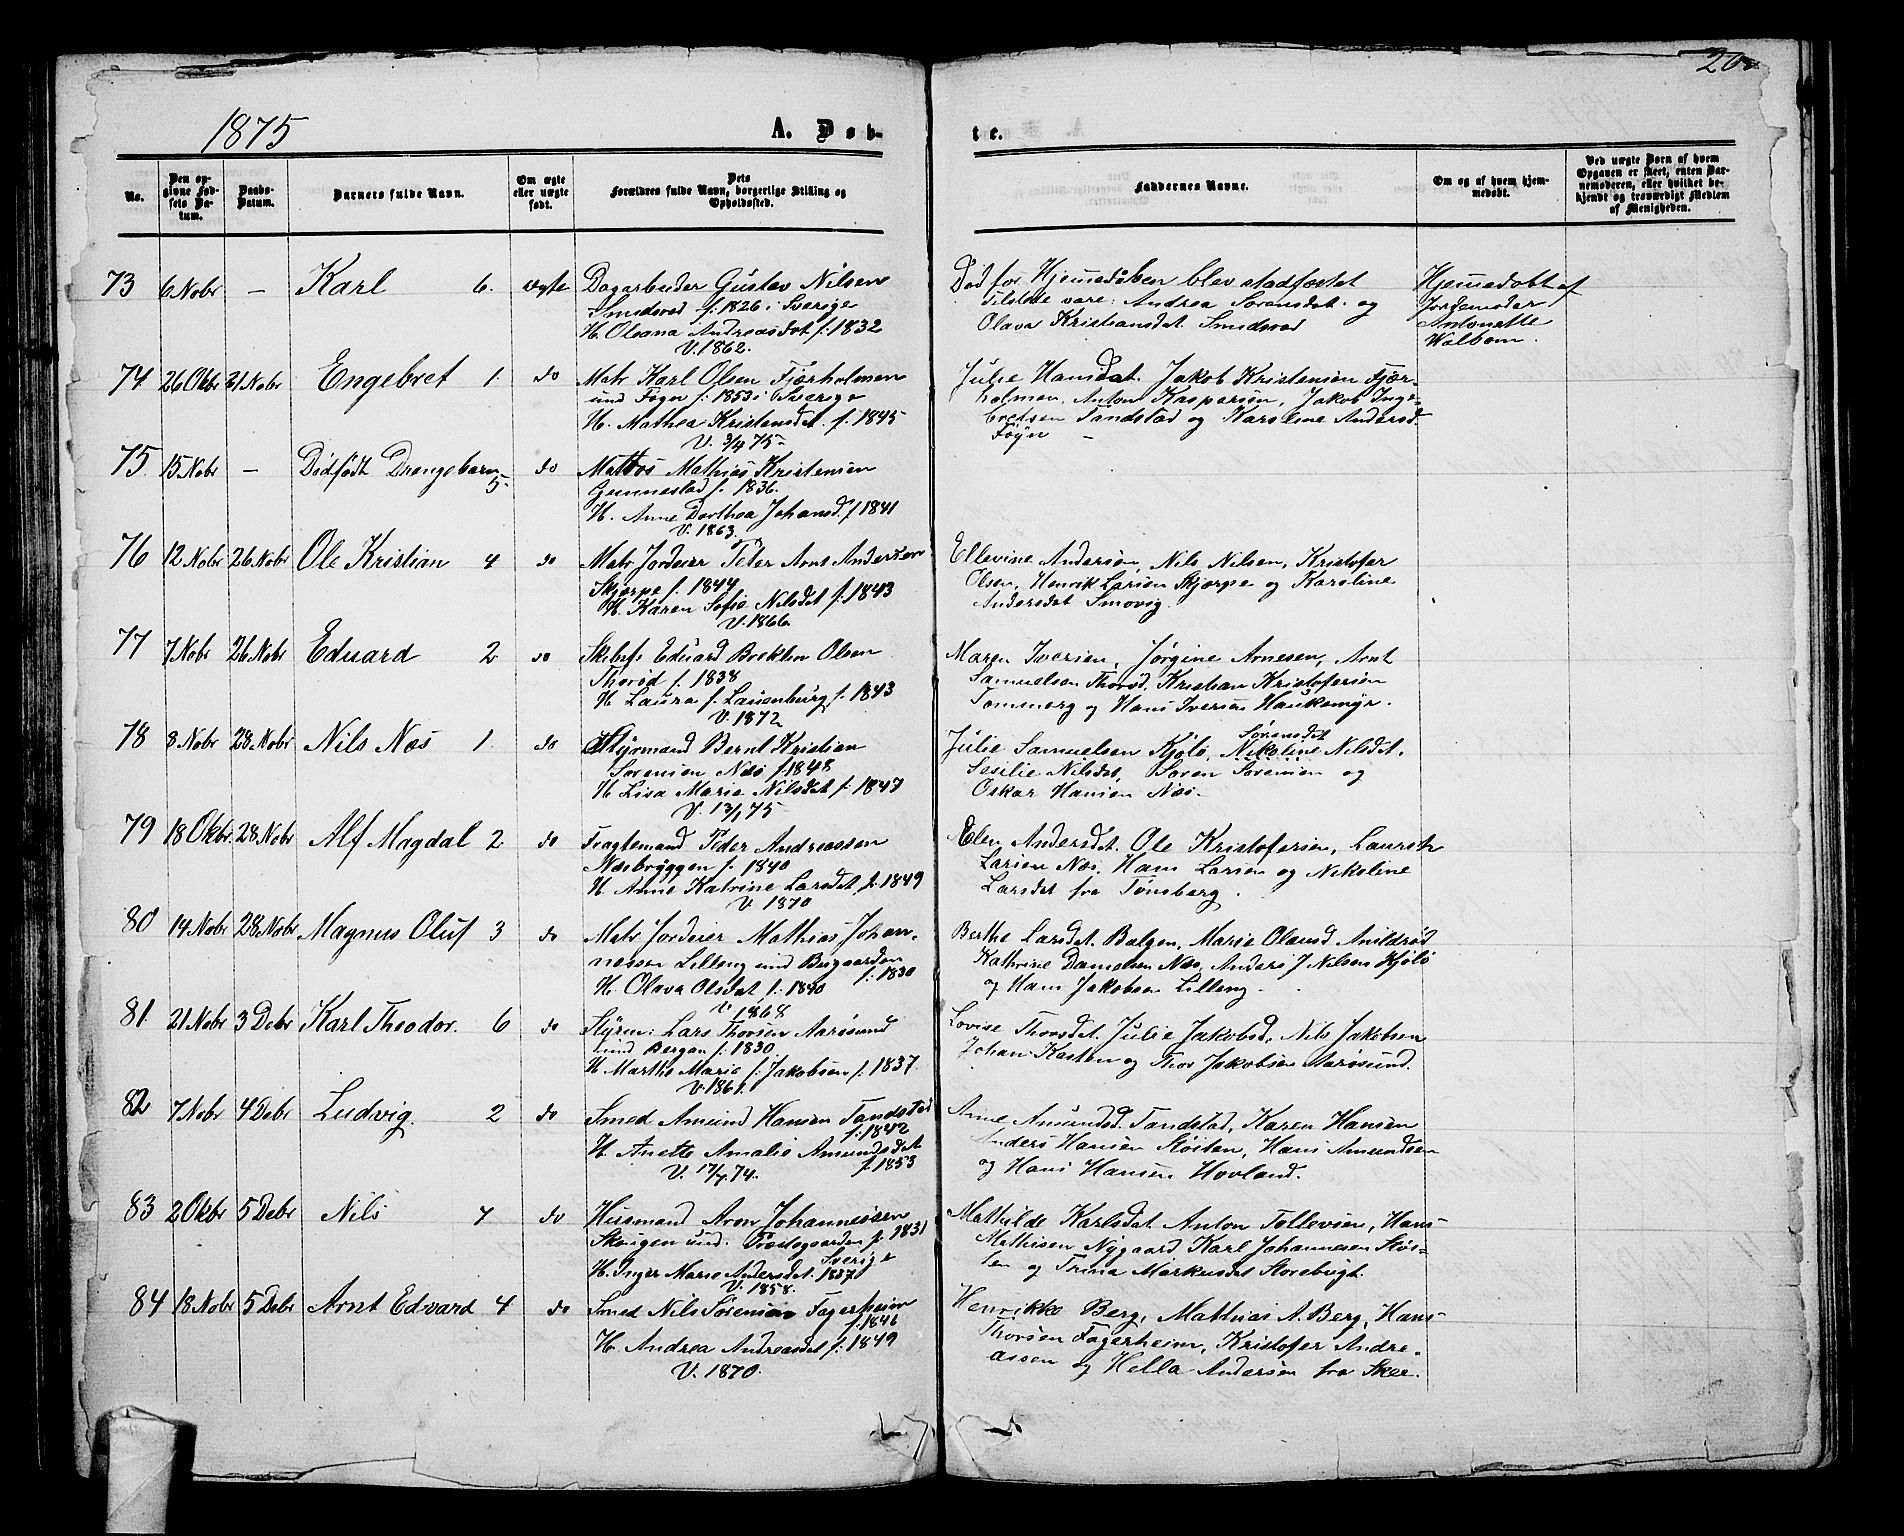 20
1875
A. Døb-
te.
No.
Den op-
givne Fød-
sels Da-
tum.
Daabs-
Datum.
Barnets fulde Navn.
Om ægte
eller uægte
født.
Dets
Forældres fulde Navn, borgerlige Stilling og
Opholdssted.
Faddernes Navne.
Om og af hvem hjem-
medøbt.
Ved uægte Børn af hvem
Opgaven er skeet, enten Bar-
nemoderen, eller hvilket be-
kjendt og troværdigt Medlem
af Menigheden.
73 6 Nobr – Karl 6. ægte Dagarbeider Gustav Nilsen
Smidsrød f. 1826 i Sverige
H. Oleana Andreasdat f. 1832
V. 1862.
Død før Hjemedåben blev stadfæstet
Tilstede vare: Andrea Sørensdat. og
Olava Kristiansdat. Smidsrød
Hjemedøbt af
Jordemoder
Antonette
Walbom.
74 26 Okbr 21 Nobr Engebret 1. do Matr Karl Olsen Fjærholmen
und Føyn f. 1853 i Sverige
H. Mathea Kristensdat. f. 1845
V. 3/4 75
Julie Hansdat. Jakob Kristensen Fjær-
holmen, Anton Kaspersen, Jakob Inge-
bretsen Tandstad og Karoline Andersd.
Føyn –
75 15 Nobr – Dødfødt Drengebarn 5. do Matros Mathias Kristensen
Gunnestad f. 1836.
H. Anne Dorthea Johansd. f 1841
V. 1863.
76 12 Nobr 26 Nobr Ole Kristian 4 do Matr Jordeier Peter Arnt Andersen
Skjerpe f. 1844
H. Karen Sofie Nilsdat f. 1843
V. 1866.
Ellevine Andersen, Nils Nilsen, Kristofer
Olsen, Henrik Larsen Skjærpe og Karoline
Andersdat Smovig.
77 7 Nobr 26 Nobr Eduard 2 do Skibsf. Eduard Breklin Olsen
Thorød f. 1838
H. Laura f. Lauenburg f. 1843
V. 1872
Maren Iversen, Jørgine Arnesen, Arnt
Samuelsen Thorød, Kristian Kristofersen
Tommerg og Hans Iversen Haukemyr.
78 8 Nobr 28 Nobr Nils Næs 1. do Styrmand Bernt Kristian
Sørensen Næs f. 1848
H. Lisa Marie Nilsdat f. 1847
V. 13/1 75
Sørensdat
Julie Samuelsen Kjøle, Nikoline Nilsdat,
Sesilie Nilsdat, Søren Sørensen og
Oskar Hansen Næs.
79 18 Okbr. 28 Nobr Alf Magdal 2 do Fragtemand Peder Andreassen
Næsbryggen f. 1840
H. Anne Katrine Larsdat f. 1849
V 1870
Elen Andersdat, Ole Kristofersen, Laurits
Larsen Næs, Hans Larsen og Nikoline
Larsdat fra Tønsberg.
80 14 Nobr 28 Nobr Magnus Oluf 3 do Matr Jordeier Mathias Johan-
nessen Lilleng und Bergaarden
f. 1830
H. Olava Olsdat f. 1840
V. 1868
Berthe Larsdat. Bølgen, Marie Olausd Anildrød
Kathrine Danielsen Næs, Anders J Nilsen Kjøle
og Hans Jakobsen Lilleng.
81. 21 Nobr 3 Debr Karl Theodor. 6 do Styrm: Lars Thorsen Aarøsund
und Bergan f. 1830
H. Marthe Marie f. Jakobsen f. 1837.
V. 1861.
Lovise Thorsdat. Julie Jakobsd, Nils Jakobsen
Johan Kasten og Thor Jakobsen Aarøsund.
82 7 Nobr 4 Debr Ludvig. 2 do Smed Amund Hansen Tandstad
f. 1842
H. Anette Amalie Amundsdat
f. 1853
V. 17/4 74.
Anne Amundsd. Tandstad, Karen Hansen
Anders Hansen Støiten, Hans Amundsen
og Hans Hansen Hovland.
83 2 Okbr 5 Debr Nils 7 do Husmand Aron Johannessen
Skougen und. Præstegaarden f. 1831
Sverige
H. Inger Marie Andersdat. 1837
V. 1858.
Mathilde Karlsdat Anton Tollevsen, Hans
Mathisen Nygaard, Karl Johannesen Støi-
ten og Trina Markusdat Storebugt.
84 18 Nobr 5 Debr Arnt Edvard 4 do Smed Nils Sørensen Fagerheim
f. 1846
H. Andrea Andreasdat f. 1849
V. 1870.
Henrikke Berg, Mathias A. Berg, Hans
Thorsen Fagerheim, Kristofer Andre-
assen og Hella Andersen fra Skee.